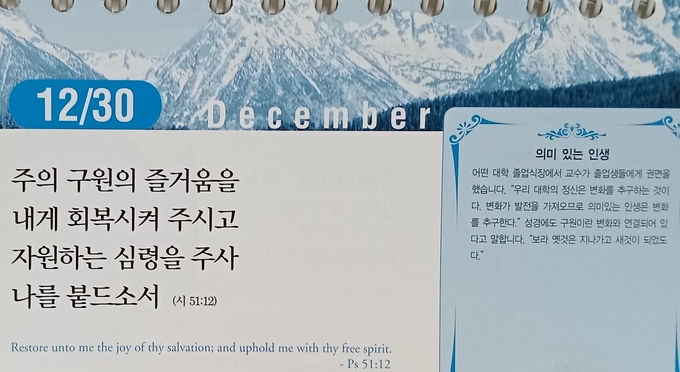 12/30
December
주의 구원의 즐거움을
내게 회복시켜 주시고
자원하는 심령을 주사
나를 붙드소서 (시 51:12)
Restore unto me the joy of thy salvation; and uphold me with thy free spirit.
- Ps 51:12
의미 있는 인생
어떤 대학 졸업식장에서 교수가 졸업생들에게 권면을
했습니다. "우리 대학의 정신은 변화를 추구하는 것이
다. 변화가 발전을 가져오므로 의미있는 인생은 변화
를 추구한다." 성경에도 구원이란 변화와 연결되어 있
다고 말합니다. "보라 옛것은 지나가고 새것이 되었도
다."